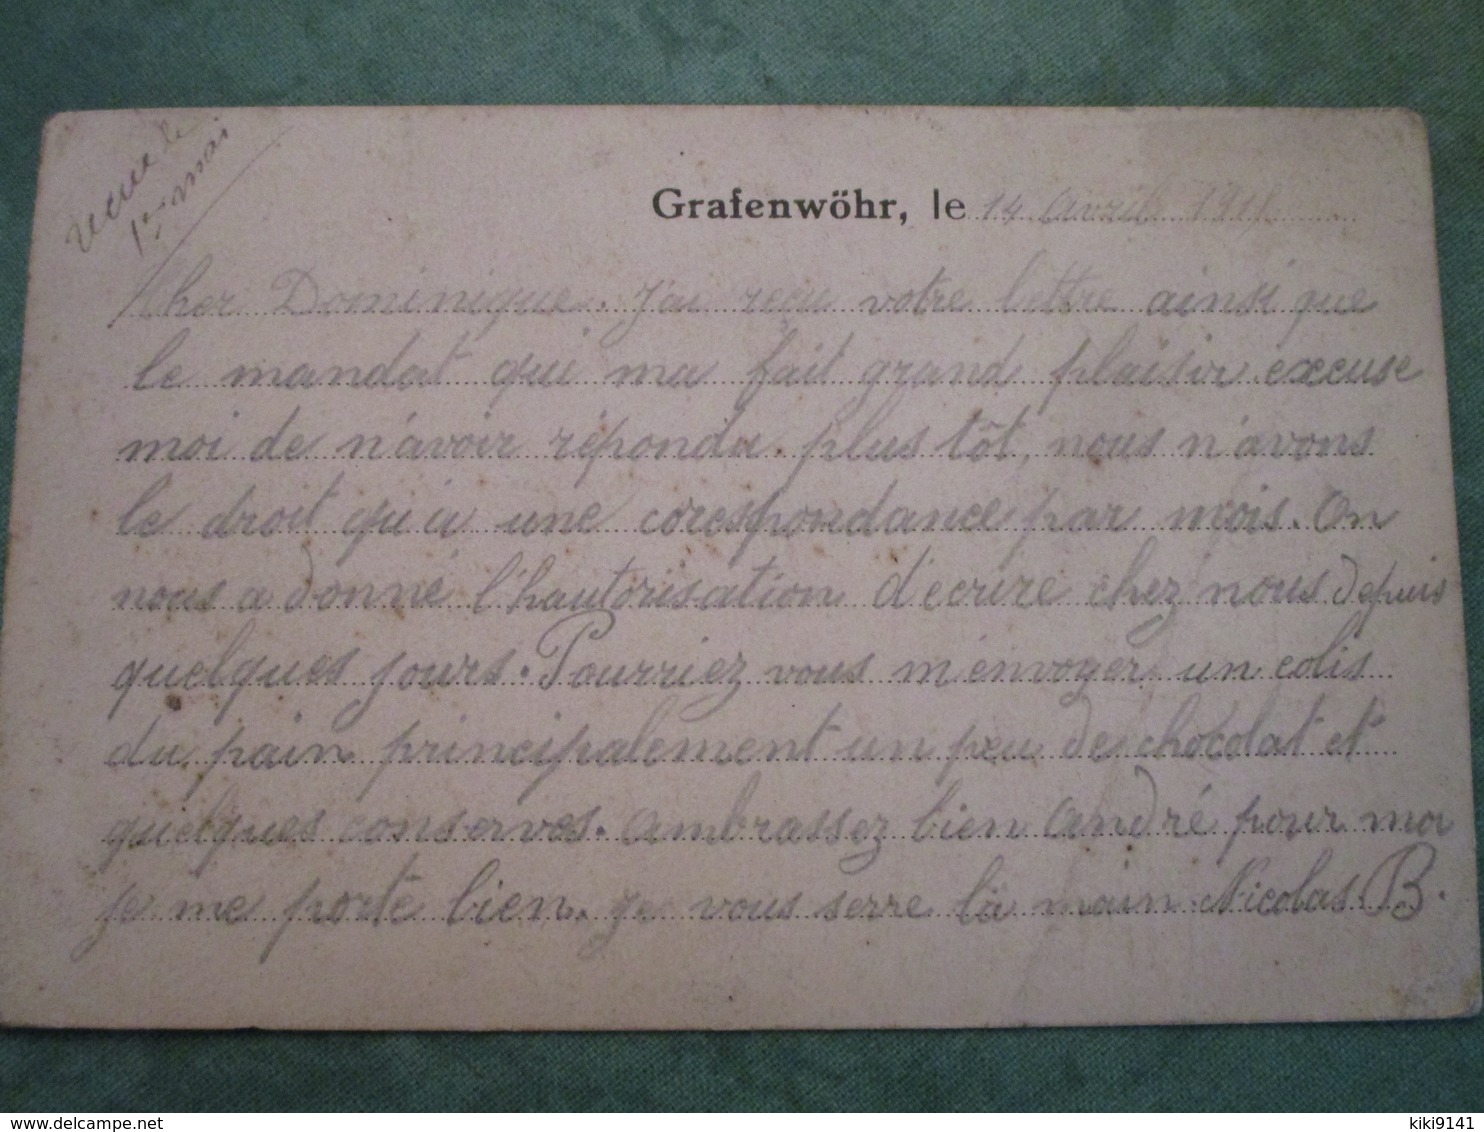 recue le
1er mai
Grafenwöhr, le 14 Avril 191
Cher Dominique. J'ai reçu votre lettre ainsi que
le mandat qui ma fait grand plaisir excuse
moi de n'avoir répondu plus tôt, nous n'avons
le droit qu'a une corespondance par mois. On
nous a donné l'hautorisation d'ecrire chez nous depuis
quelques jours. Pourriez vous m'envoyer un colis
du pain principalement un peu de chocolat et
quelques conserves. Ambrassez bien André pour moi
je me porte bien. Je vous serre la main Nicolas B.
delcampe.net
kiki9141